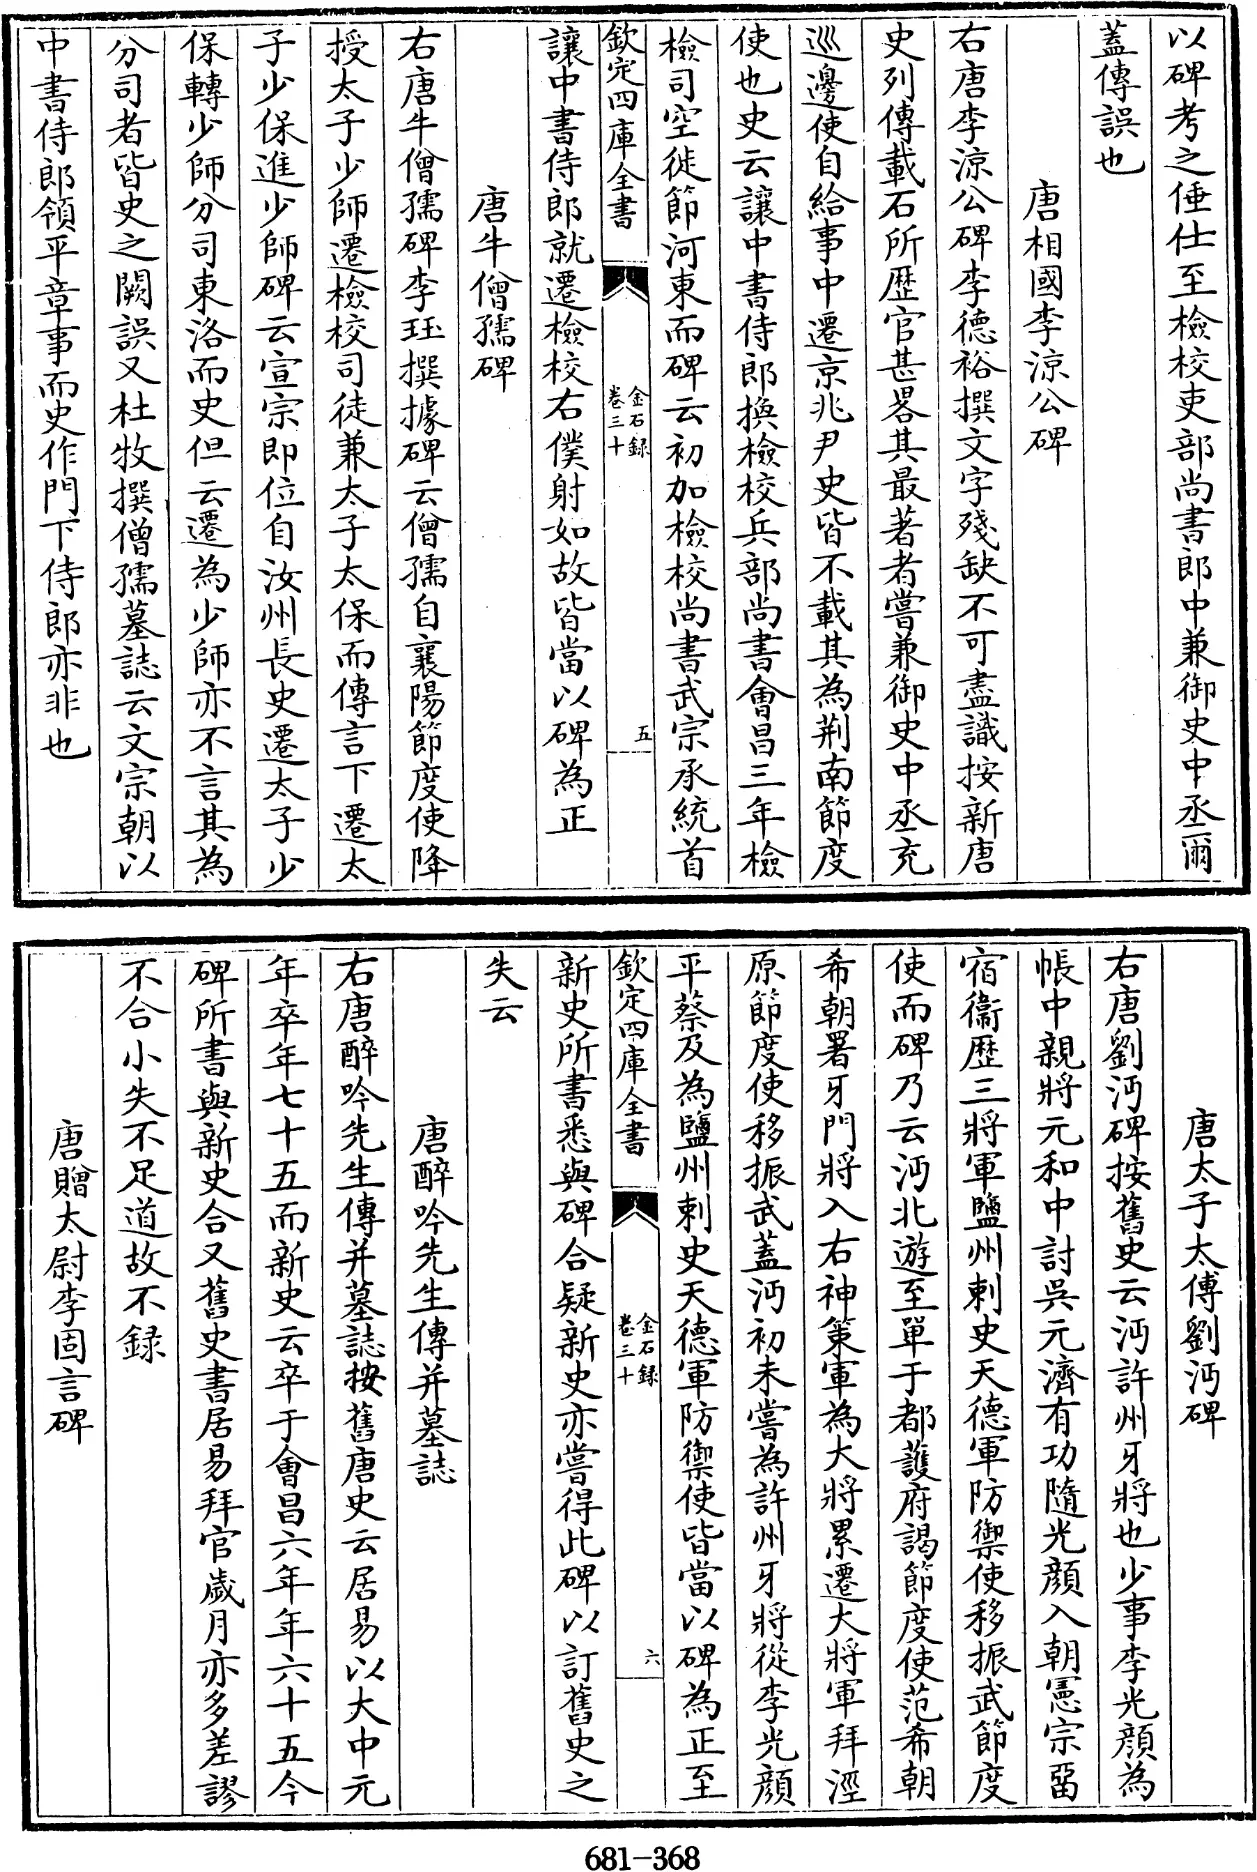 以碑考之倕仕至檢校吏部尚書郎中兼御史中丞爾
蓋傳誤也
唐相國李涼公碑
右唐李涼公碑李德裕撰文字殘缺不可盡識按新唐
史列傳載石所歴官甚畧其最著者嘗兼御史中丞充
巡邊使自給事中遷京兆尹史皆不載其為荆南節度
使也史云讓中書侍郎換檢校兵部尚書會昌三年檢
檢司空徙節河東而碑云初加檢校尚書武宗承統首
欽定四庫全書
金石録
卷三十
五
讓中書侍郎就遷檢校右僕射如故皆當以碑為正
唐牛僧孺碑
右唐牛僧孺碑李珏撰據碑云僧孺自襄陽節度使降
授太子少師遷檢校司徒兼太子太保而傳言下遷太
子少保進少師碑云宣宗即位自汝州長史遷太子少
保轉少師分司東洛而史但云遷為少師亦不言其為
分司者皆史之闕誤又杜牧撰僧孺墓誌云文宗朝以
中書侍郎領平章事而史作門下侍郎亦非也
唐太子太傅劉沔碑
右唐劉沔碑按舊史云沔許州牙將也少事李光顔為
帳中親將元和中討吳元濟有功隨光顔入朝憲宗畱
宿衞歴三將軍鹽州刺史天德軍防禦使移振武節度
使而碑乃云沔北遊至單于都護府謁節度使范希朝
希朝署牙門將入右神策軍為大將累遷大將軍拜涇
原節度使移振武蓋沔初未嘗為許州牙將從李光顔
平蔡及為鹽州刺史天德軍防禦使皆當以碑為正至
欽定四庫全書
金石録
卷三十
六
新史所書悉與碑合疑新史亦嘗得此碑以訂舊史之
失云
唐醉吟先生傳并墓誌
右唐醉吟先生傳并墓誌按舊唐史云居易以大中元
年卒年七十五而新史云卒于會昌六年年六十五今
碑所書與新史合又舊史書居易拜官歲月亦多差謬
不合小失不足道故不録
唐贈太尉李固言碑
681-368